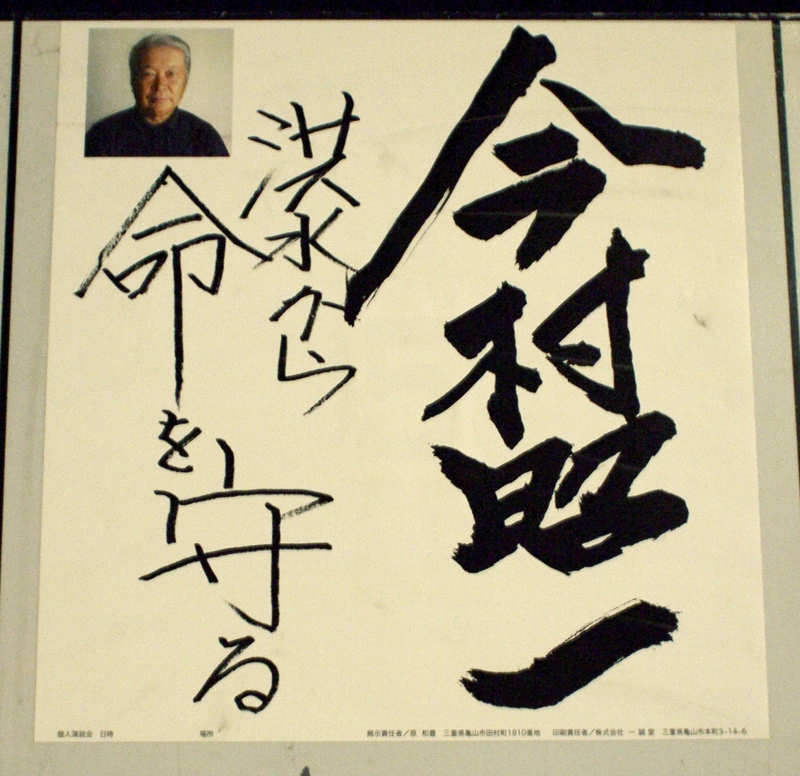 今村昭一
洪水から
命を守る
個人演説会 日時 場所 掲示責任者／原 和豊 三重県亀山市田村町1810番地 印刷責任者／株式会社 一誠堂 三重県亀山市本町3-14-6